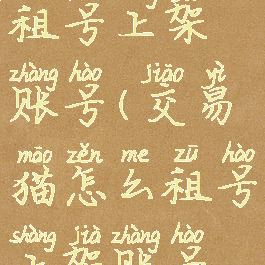 租号上架
zhàng hào jiāo yì
账号(交易
māo zěn me zū hào
猫怎么租号
shàng jià zhàng hào
上架账号